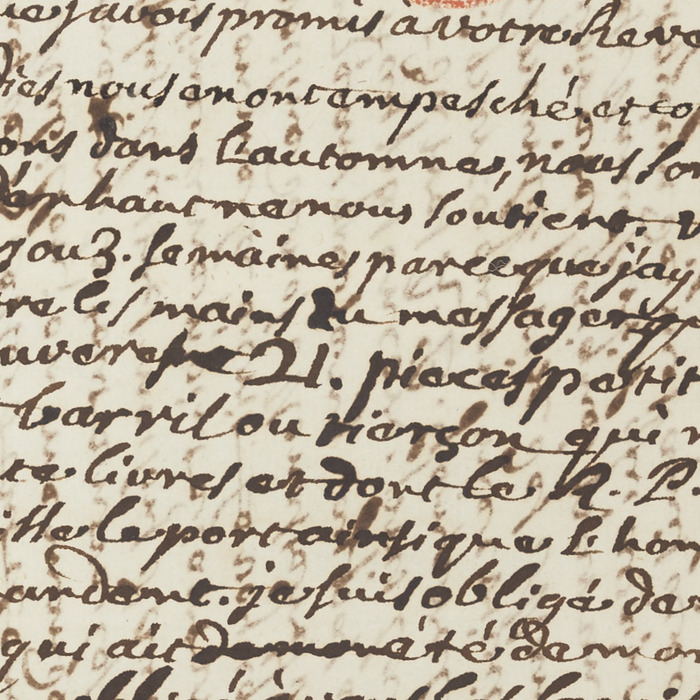 ue javois promis a votre Reve
ies nous en ont empesché, et co
ons dans L'automne, nous so
d'enhaut ne nous soutient.
3. semaines parce que j'ay
tre les mains du messager
uvere 21. pieces petit
barril ou tierçon qui
te livres et dont le R. P.
ille le port ainsi que L'hon
andent. je suis obligé de
qui ait de mon